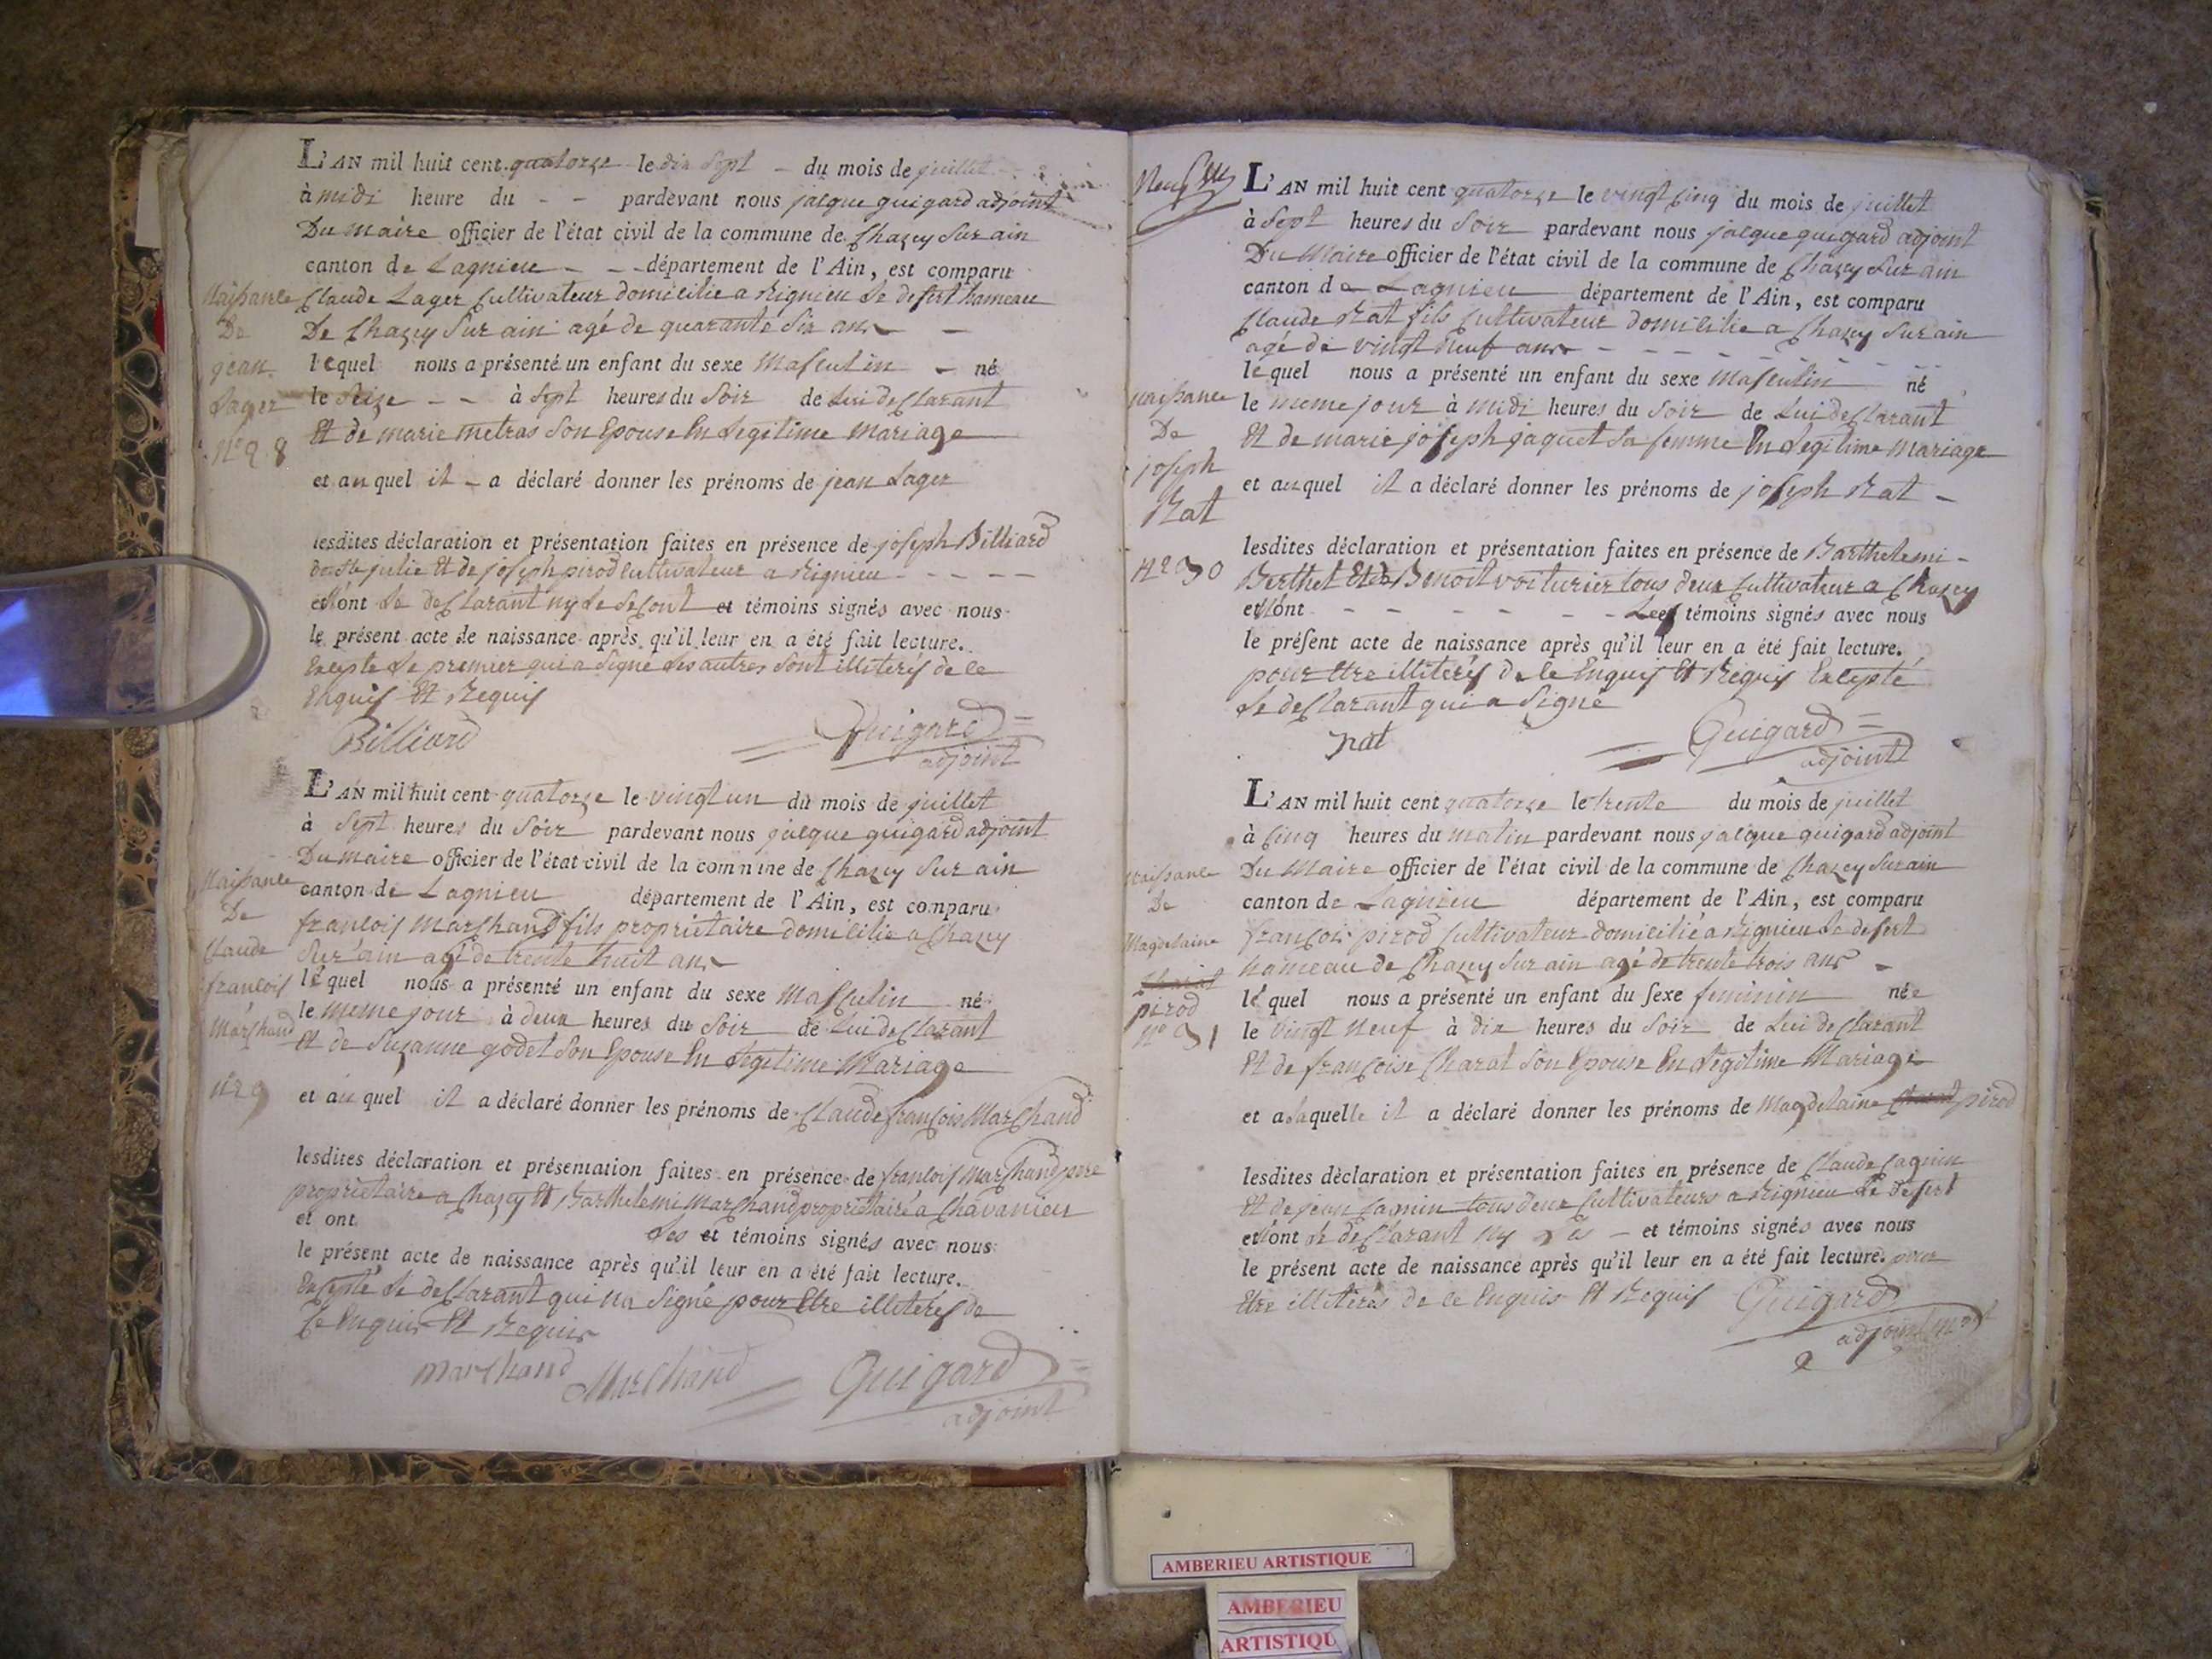 L'AN mil huit cent quatorze le dix sept - du mois de juillet
à midi heure du - - pardevant nous jacque guigard adjoint
Du maire officier de l'état civil de la commune de Chazey sur ain
canton de Lagnieu - - - département de l'Ain, est comparu
Claude Lager Cultivateur domicilié a Rignieu Le desert hameau
De Chazey sur ain agé de quarante six ans -
lequel nous a présenté un enfant du sexe Masculin - né
le seize - - à sept heures du soir de Lui desclarant
Et de marie metras Son Epouse En Legitime Mariage
et au quel il - a déclaré donner les prénoms de jean Lager
Naissance
De
jean
Lager
N° 28
lesdites déclaration et présentation faites en présence de joseph Billiard
de Ste julie Et de joseph pirod cultivateur a Rignieu - - - - -
et n'ont Le desClarant ny Le second et témoins signés avec nous
le présent acte de naissance après qu'il leur en a été fait lecture.
Excepte Le premier qui a signé Les autres sont illiterés de ce
Enquis Et Requis
Billiard
Guigard
adjoint
L'AN mil huit cent quatorze le vingt un du mois de juillet
à sept heures du soir pardevant nous jacque guigard adjoint
Du maire officier de l'état civil de la commune de Chazey sur ain
canton de Lagnieu département de l'Ain, est comparu
francois Marchand fils proprietaire domicilié a Chazey
sur ain agé de trente huit ans
lequel nous a présenté un enfant du sexe Masculin né
le meme jour à deux heures du soir de Lui desclarant
Et de Suzanne godet Son Epouse En Legitime Mariage
et au quel il a déclaré donner les prénoms de Claude françois Marchand
Naissance
De
Claude
francois
Marchand
N° 29
lesdites déclaration et présentation faites en présence de francois Marchand pere
proprietaire a Chazey Et Barthelemi Marchand proprietaire a Chavanieu
et ont Les et témoins signés avec nous
le présent acte de naissance après qu'il leur en a été fait lecture.
Excepté Le desclarant qui na signé pour Etre illiterés de
Ce Enquis Et Requis
Marchand Marchand Guigard
adjoint
L'AN mil huit cent quatorze le vingt cinq du mois de juillet
à sept heures du soir pardevant nous jacque guigard adjoint
Du Maire officier de l'état civil de la commune de Chazey sur ain
canton de Lagnieu département de l'Ain, est comparu
Claude Rat fils Cultivateur domicilié a Chazey sur ain
agé de vingt neuf ans - - - - - -
lequel nous a présenté un enfant du sexe Masculin né
le meme jour à midi heures du soir de Lui desclarant
Et de marie joseph jaquet sa femme En Legitime Mariage
et auquel il a déclaré donner les prénoms de joseph Rat -
Naissance
De
joseph
Rat
N° 30
lesdites déclaration et présentation faites en présence de Barthelemi -
Berthet Et de Benoit voiturier tous deux Cultivateur a Chazey
et n'ont - - - - - - Les témoins signés avec nous
le présent acte de naissance après qu'il leur en a été fait lecture.
pour Etre illiterés de ce Enquis Et Requis Excepté
Le desclarant qui a signé
Rat
Guigard
adjoint
L'AN mil huit cent quatorze le trente du mois de juillet
à cinq heures du matin pardevant nous jacque guigard adjoint
Du Maire officier de l'état civil de la commune de Chazey sur ain
canton de Lagnieu département de l'Ain, est comparu
françois pirod Cultivateur domicilié a Rignieu Le desert
hameau de Chazey sur ain agé de trente trois ans -
lequel nous a présenté un enfant du sexe feminin née
le vingt neuf à dix heures du soir de Lui desclarant
Et de françoise Charat son Epouse En Legitime Mariage
et a laquelle il a déclaré donner les prénoms de Magdelaine Charat pirod
Naissance
De
Magdelaine
Charat
pirod
N° 31
lesdites déclaration et présentation faites en présence de Claude
Et de jean tous deux Cultivateurs a Rignieu Le Desert
et n'ont Le desclarant ny Les - et témoins signés avec nous
le présent acte de naissance après qu'il leur en a été fait lecture. pour
Etre illiterés de ce Enquis Et Requis Guigard
adjoint
AMBERIEU ARTISTIQUE
AMBERIEU
ARTISTIQU